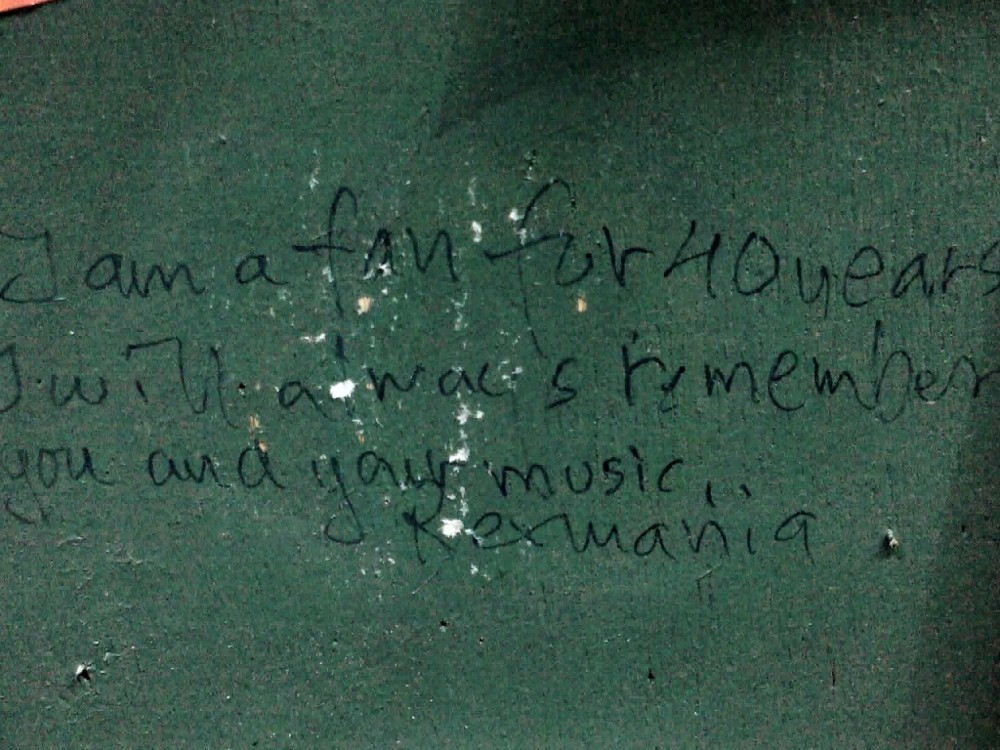 I am a fan for 40 years
I will always remember
you and your music...
Rexmania